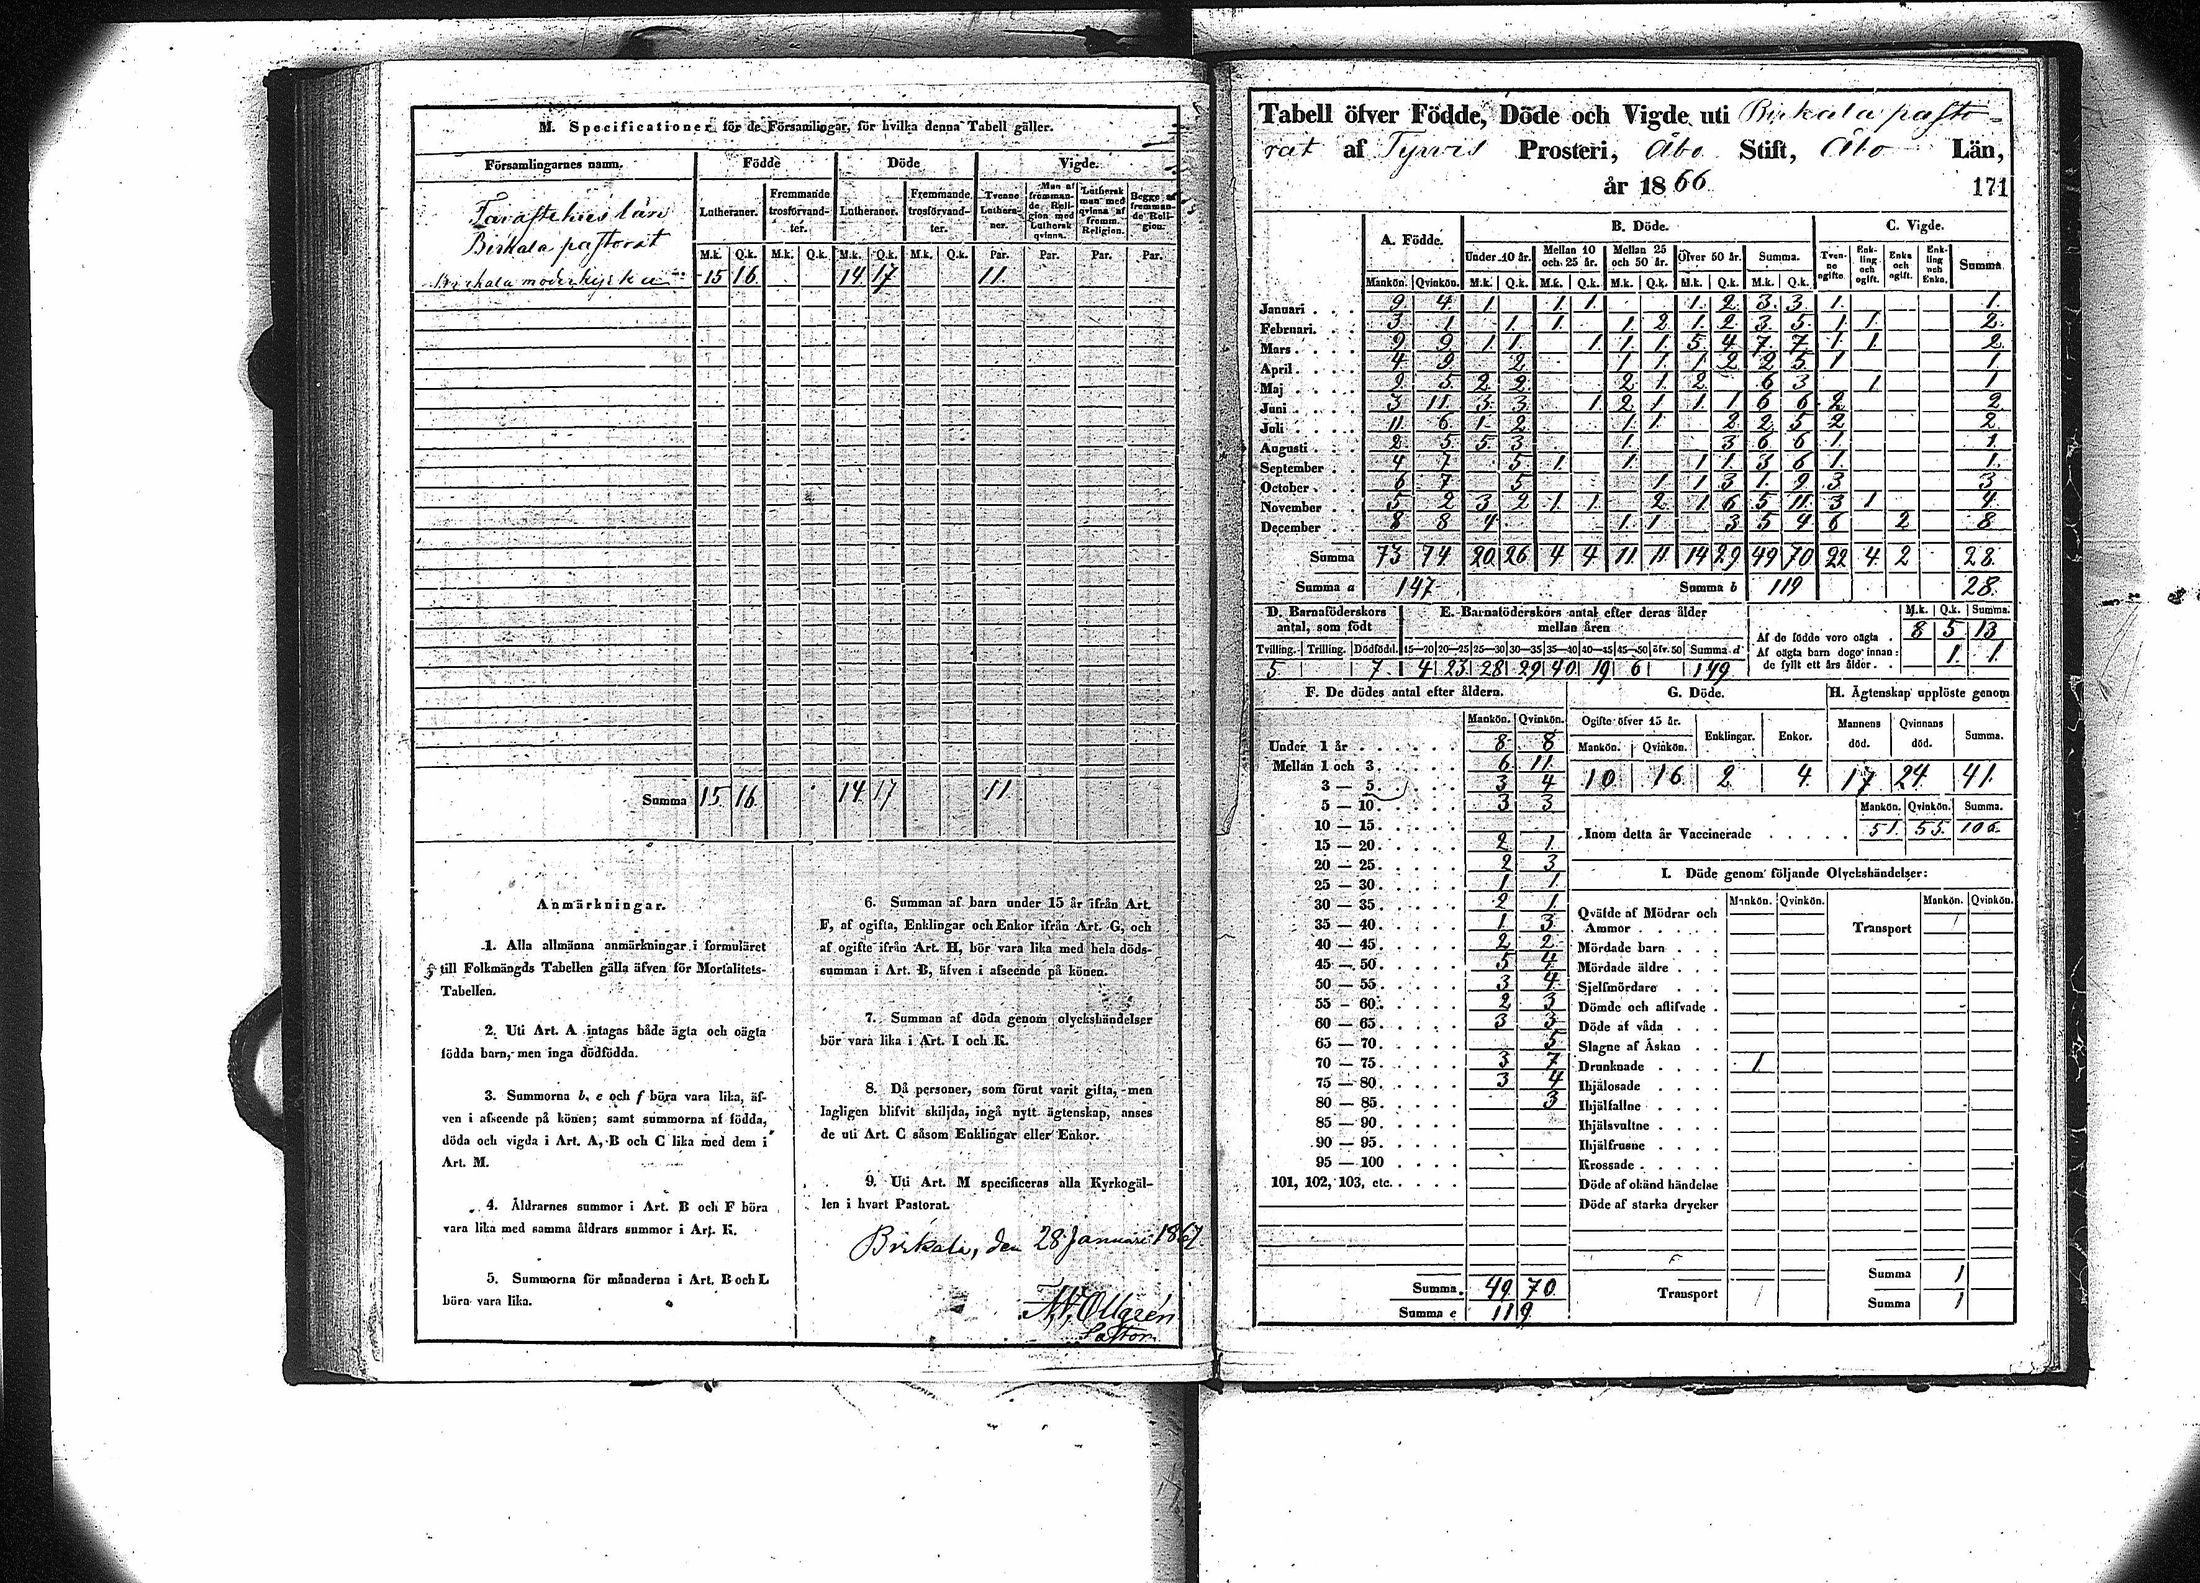 M. Specificationer för de Församlingar, för hvilka denna Tabell gäller.
Församlingarnes namn. Födde Döde Vigde.
Lutheraner. Fremmande trosförvandter. Lutheraner. Fremmande trosförvandter. Tvenne Lutheraner. Man af fremmande Religion med Luthersk qvinna. Luthersk man med qvinna af fremm. Religion. Begge af fremmande Religion.
M.k. Q.k. M.k. Q.k. M.k. Q.k. M.k. Q.k. Par. Par. Par. Par.
Tavastehus län
Birkala pastorat
Birkala moderkyrka 15 16 14 17 11
Summa 15 16 14 17 11
Anmärkningar.
1. Alla allmänna anmärkningar i formuläret
till Folkmängds Tabellen gälla äfven för Mortalitets-
Tabellen.
2. Uti Art. A intagas både ägta och oägta
födda barn, men inga dödfödda.
3. Summorna b, e och f böra vara lika, äf-
ven i afseende på könen; samt summorna af födda,
döda och vigda i Art. A, B och C lika med dem i
Art. M.
4. Åldrarnes summor i Art. B och F böra
vara lika med samma åldrars summor i Art. K.
5. Summorna för månaderna i Art. B och L
böra vara lika.
6. Summan af barn under 15 år ifrån Art.
F, af ogifta, Enklingar och Enkor ifrån Art. G, och
af ogifte ifrån Art. H, bör vara lika med hela döds-
summan i Art. B, äfven i afseende på könen.
7. Summan af döda genom olyckshändelser
bör vara lika i Art. I och K.
8. Då personer, som förut varit gifta, men
lagligen blifvit skiljda, ingå nytt ägtenskap, anses
de uti Art. C såsom Enklingar eller Enkor.
9. Uti Art. M specificeras alla Kyrkogäl-
len i hvart Pastorat.
Birkala, den 28 Januari 1867
Pastor
Tabell öfver Födde, Döde och Vigde uti Birkala pasto-
rat af Tyrvis Prosteri, Åbo Stift, Åbo Län,
år 1866 171
A. Födde. B. Döde. C. Vigde.
Under 10 år. Mellan 10 och 25 år. Mellan 25 och 50 år. Öfver 50 år. Summa. Tvenne ogifte. Enkling och ogift. Enka och ogift. Enkling och Enka. Summa.
Mankön. Qvinkön. M.k. Q.k. M.k. Q.k. M.k. Q.k. M.k. Q.k. M.k. Q.k.
Januari 9 4 1 1 1 1 2 3 3 1 1
Februari 3 1 1 1 1 2 1 2 3 5 1 1 2
Mars 9 9 1 1 1 1 1 5 4 7 7 1 1 2
April 4 9 2 1 1 1 2 2 5 1 1
Maj 9 5 2 2 2 1 2 6 3 1 1
Juni 3 11 3 3 1 2 1 1 1 6 6 2 2
Juli 11 6 1 2 1 1 2 2 5 2 2
Augusti 2 5 5 3 1 3 6 6 1 1
September 4 7 5 1 1 1 1 3 6 1 1
October 6 7 5 1 1 3 1 9 3 3
November 5 2 3 2 1 1 2 1 6 5 11 3 1 4
December 8 8 4 1 1 3 5 4 6 2 8
Summa 73 74 20 26 4 4 11 11 14 29 49 70 22 4 2 28
Summa a 147 Summa b 119 28
D. Barnaföderskors antal, som födt
Tvilling. Trilling. Dödfödd.
5 7
E. Barnaföderskors antal efter deras ålder mellan åren
15—20 20—25 25—30 30—35 35—40 40—45 45—50 öfv. 50 Summa d
4 23 28 29 40 19 6 149
M.k. Q.k. Summa.
Af de födde voro oägta 8 5 13
Af oägta barn dogo innan de fyllt ett års ålder 1 1
F. De dödes antal efter åldern.
Mankön. Qvinkön.
Under 1 år 8 8
Mellan 1 och 3 6 11
3 — 5 3 4
5 — 10 3 3
10 — 15
15 — 20 2 1
20 — 25 2 3
25 — 30 1 1
30 — 35 2 1
35 — 40 1 3
40 — 45 2 2
45 — 50 5 4
50 — 55 3 4
55 — 60 2 3
60 — 65 3 3
65 — 70 5
70 — 75 3 7
75 — 80 3 4
80 — 85 3
85 — 90
90 — 95
95 — 100
101, 102, 103, etc.
Summa 49 70
Summa e 119
G. Döde.
Ogifte öfver 15 år. Enklingar. Enkor.
Mankön. Qvinkön.
10 16 2 4
H. Ägtenskap upplöste genom
Mannens död. Qvinnans död. Summa.
17 24 41
Mankön. Qvinkön. Summa.
Inom detta år Vaccinerade 51 55 106
I. Döde genom följande Olyckshändelser:
Mankön. Qvinkön. Mankön. Qvinkön.
Qväfde af Mödrar och Ammor
Mördade barn
Mördade äldre
Sjelfmördare
Dömde och aflifvade
Döde af våda
Slagne af Åskan
Drunknade 1
Ihjälosade
Ihjälfallne
Ihjälsvultne
Ihjälfrusne
Krossade
Döde af okänd händelse
Döde af starka drycker
Transport 1
Transport 1
Summa 1
Summa 1